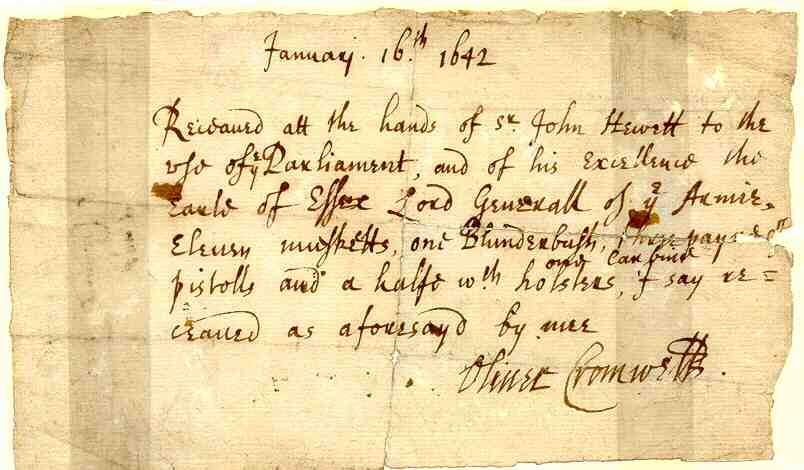 January. 16.th 1642
Receaved att the hands of Sr. John Hewett to the
vse of ye Parliament, and of his Excellence the
Earle of Essex Lord Generall of ye Armie,
Eleven musketts, one Blunderbush, payre
one Carbine
pistolls and a halfe wth holsters, I say re=
ceaved as aforesayd by mee
Oliver Cromwell.